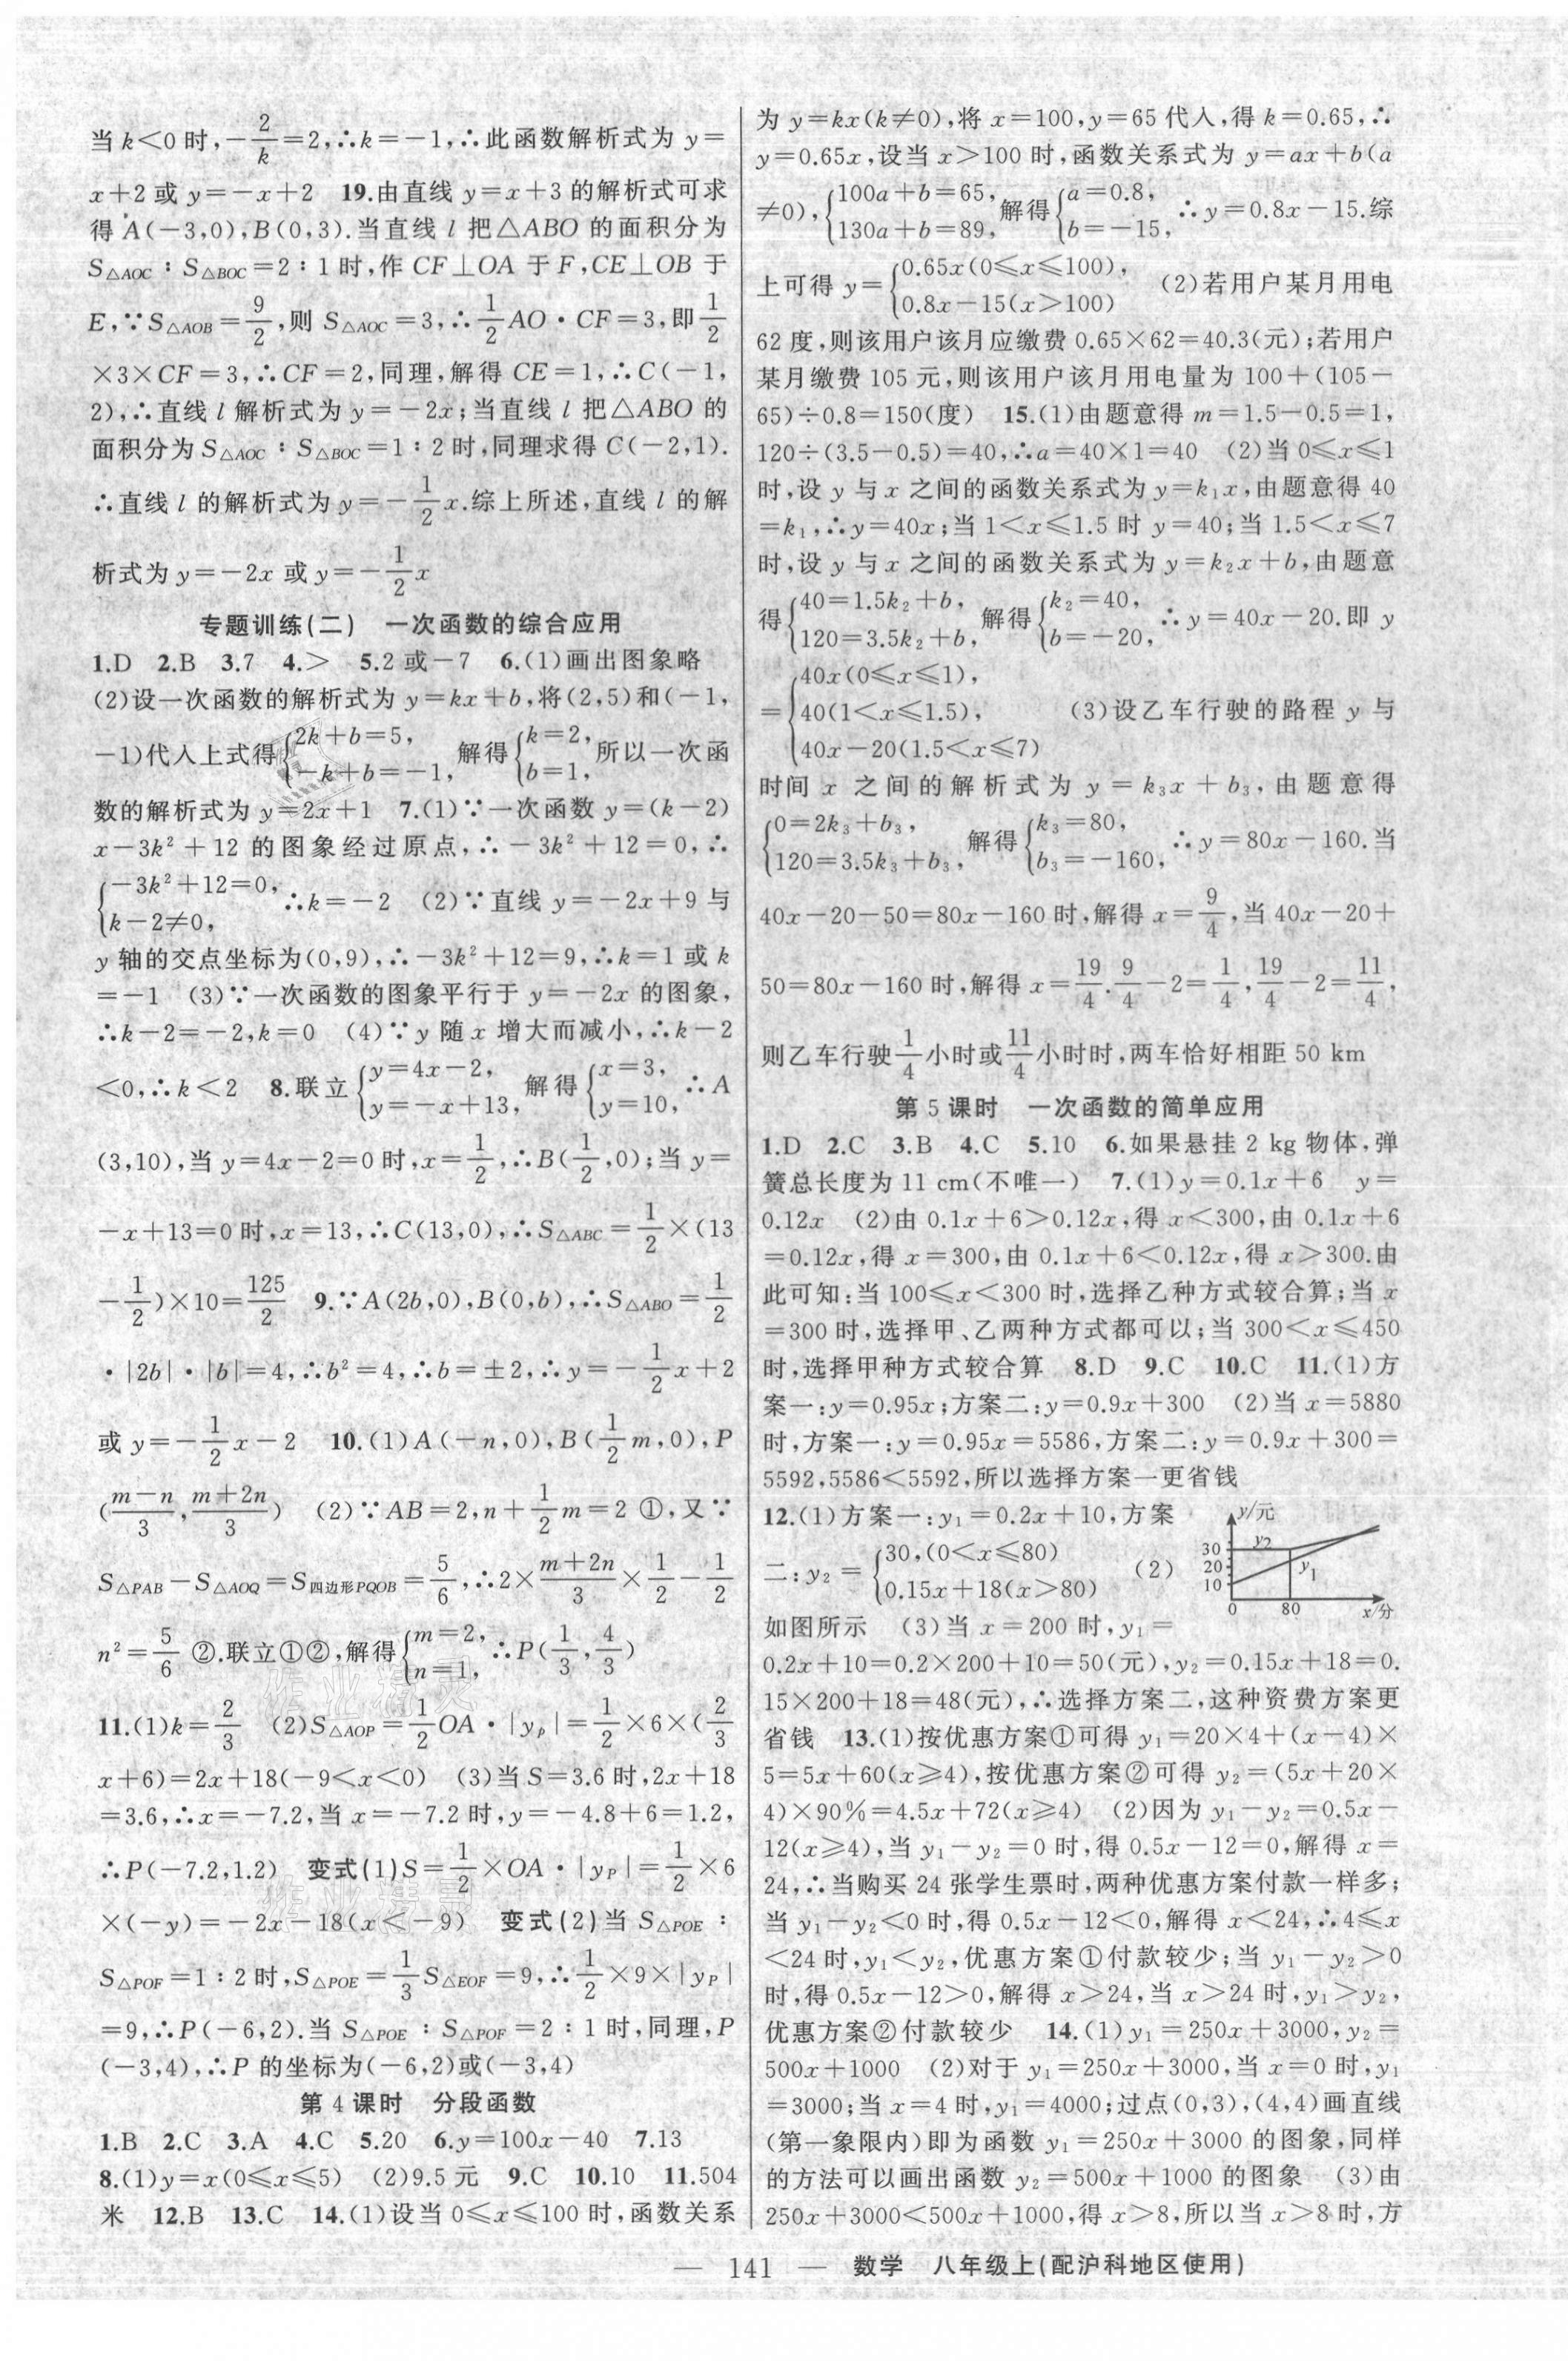 当k<0时,-2/k=2,∴k=-1,∴此函数解析式为 y=
x+2或 y=-x+2 19.由直线 y=x+3的解析式可求
得A(-3,0),B(0,3).当直线 l 把△ABO 的面积分为
S△AOC：S△BOC=2：1时,作 CF⊥OA 于 F,CE⊥OB 于
E,∵S△AOB=9/2,则 S△AOC=3,∴1/2AO·CF=3,即1/2
×3×CF=3,∴CF=2,同理,解得 CE=1,∴C(-1,
2),∴直线 l 解析式为 y=-2x;当直线 l 把△ABO 的
面积分为 S△AOC：S△BOC=1：2时,同理求得 C(-2,1).
∴直线 l 的解析式为 y=-1/2x.综上所述,直线 l 的解
析式为 y=-2x 或 y=-1/2x
专题训练(二) 一次函数的综合应用
1.D 2.B 3.7 4.> 5.2或-7 6.(1)画出图象略
(2)设一次函数的解析式为 y=kx+b,将(2,5)和(-1,
-1)代入上式得{2k+b=5, -k+b=-1, 解得{k=2, b=1, 所以一次函
数的解析式为 y=2x+1 7.(1)∵一次函数 y=(k-2)
x-3k²+12 的图象经过原点,∴-3k²+12=0,∴
{-3k²+12=0, k-2≠0, ∴k=-2 (2)∵直线 y=-2x+9与
y轴的交点坐标为(0,9),∴-3k²+12=9,∴k=1或 k
=-1 (3)∵一次函数的图象平行于 y=-2x 的图象,
∴k-2=-2,k=0 (4)∵y 随 x 增大而减小,∴k-2
<0,∴k<2 8.联立{y=4x-2, y=-x+13, 解得{x=3, y=10, ∴A
(3,10),当 y=4x-2=0时,x=1/2,∴B(1/2,0);当 y=
-x+13=0时,x=13,∴C(13,0),∴S△ABC=1/2×(13
-1/2)×10=125/2 9.∵A(2b,0),B(0,b),∴S△ABO=1/2
·|2b|·|b|=4,∴b²=4,∴b=±2,∴y=-1/2x+2
或 y=-1/2x-2 10.(1)A(-n,0),B(1/2m,0),P
((m-n)/3,(m+2n)/3) (2)∵AB=2,n+1/2m=2 ①,又∵
S△PAB-S△AOQ=S四边形PQOB=5/6,∴2×(m+2n)/3×1/2-1/2
n²=5/6 ②.联立①②,解得{m=2, n=1, ∴P(1/3,4/3)
11.(1)k=2/3 (2)S△AOP=1/2OA·|yp|=1/2×6×(2/3
x+6)=2x+18(-9<x<0) (3)当S=3.6时,2x+18
=3.6,∴x=-7.2,当 x=-7.2时,y=-4.8+6=1.2,
∴P(-7.2,1.2) 变式(1)S=1/2×OA·|yP|=1/2×6
×(-y)=-2x-18(x<-9) 变式(2)当 S△POE：
S△POF=1：2时,S△POE=1/3S△EOF=9,∴1/2×9×|yP|
=9,∴P(-6,2).当 S△POE：S△POF=2：1时,同理,P
(-3,4),∴P 的坐标为(-6,2)或(-3,4)
第4课时 分段函数
1.B 2.C 3.A 4.C 5.20 6.y=100x-40 7.13
8.(1)y=x(0≤x≤5) (2)9.5元 9.C 10.10 11.504
米 12.B 13.C 14.(1)设当 0≤x≤100时,函数关系
为 y=kx(k≠0),将 x=100,y=65代入,得 k=0.65,∴
y=0.65x,设当 x>100时,函数关系式为 y=ax+b(a
≠0),{100a+b=65, 130a+b=89, 解得{a=0.8, b=-15, ∴y=0.8x-15.综
上可得 y={0.65x(0≤x≤100), 0.8x-15(x>100) (2)若用户某月用电
62度,则该用户该月应缴费 0.65×62=40.3(元);若用户
某月缴费 105元,则该用户该月用电量为 100+(105-
65)÷0.8=150(度) 15.(1)由题意得 m=1.5-0.5=1,
120÷(3.5-0.5)=40,∴a=40×1=40 (2)当 0≤x≤1
时,设 y 与 x 之间的函数关系式为 y=k₁x,由题意得 40
=k₁,∴y=40x;当 1<x≤1.5时 y=40;当 1.5<x≤7
时,设 y 与 x 之间的函数关系式为 y=k₂x+b,由题意
得{40=1.5k₂+b, 120=3.5k₂+b, 解得{k₂=40, b=-20, ∴y=40x-20.即 y
={40x(0≤x≤1), 40(1<x≤1.5), 40x-20(1.5<x≤7) (3)设乙车行驶的路程 y 与
时间 x 之间的解析式为 y=k₃x+b₃,由题意得
{0=2k₃+b₃, 120=3.5k₃+b₃, 解得{k₃=80, b₃=-160, ∴y=80x-160.当
40x-20-50=80x-160时,解得 x=9/4,当 40x-20+
50=80x-160时,解得 x=19/4.9/4-2=1/4,19/4-2=11/4,
则乙车行驶1/4小时或11/4小时时,两车恰好相距 50 km
第5课时 一次函数的简单应用
1.D 2.C 3.B 4.C 5.10 6.如果悬挂 2 kg 物体,弹
簧总长度为 11 cm(不唯一) 7.(1)y=0.1x+6 y=
0.12x (2)由 0.1x+6>0.12x,得 x<300,由 0.1x+6
=0.12x,得 x=300,由 0.1x+6<0.12x,得 x>300.由
此可知:当 100≤x<300时,选择乙种方式较合算;当 x
=300时,选择甲、乙两种方式都可以;当 300<x≤450
时,选择甲种方式较合算 8.D 9.C 10.C 11.(1)方
案一:y=0.95x;方案二:y=0.9x+300 (2)当 x=5880
时,方案一:y=0.95x=5586,方案二:y=0.9x+300=
5592,5586<5592,所以选择方案一更省钱
12.(1)方案一:y₁=0.2x+10,方案
二:y₂={30,(0<x≤80) 0.15x+18(x>80) (2)
y/元
y₂
30
20
10
y₁
0 80 x/分
如图所示 (3)当 x=200时,y₁=
0.2x+10=0.2×200+10=50(元),y₂=0.15x+18=0.
15×200+18=48(元),∴选择方案二,这种资费方案更
省钱 13.(1)按优惠方案①可得 y₁=20×4+(x-4)×
5=5x+60(x≥4),按优惠方案②可得 y₂=(5x+20×
4)×90%=4.5x+72(x≥4) (2)因为 y₁-y₂=0.5x-
12(x≥4),当 y₁-y₂=0时,得 0.5x-12=0,解得 x=
24,∴当购买 24张学生票时,两种优惠方案付款一样多;
当 y₁-y₂<0时,得 0.5x-12<0,解得 x<24,∴4≤x
<24时,y₁<y₂,优惠方案①付款较少;当 y₁-y₂>0
时,得 0.5x-12>0,解得 x>24,当 x>24时,y₁>y₂,
优惠方案②付款较少 14.(1)y₁=250x+3000,y₂=
500x+1000 (2)对于 y₁=250x+3000,当 x=0时,y₁
=3000;当 x=4时,y₁=4000;过点(0,3),(4,4)画直线
(第一象限内)即为函数 y₁=250x+3000 的图象,同样
的方法可以画出函数 y₂=500x+1000 的图象 (3)由
250x+3000<500x+1000,得 x>8,所以当 x>8时,方
— 141 — 数学 八年级上(配沪科地区使用)
作业精灵
作业精灵